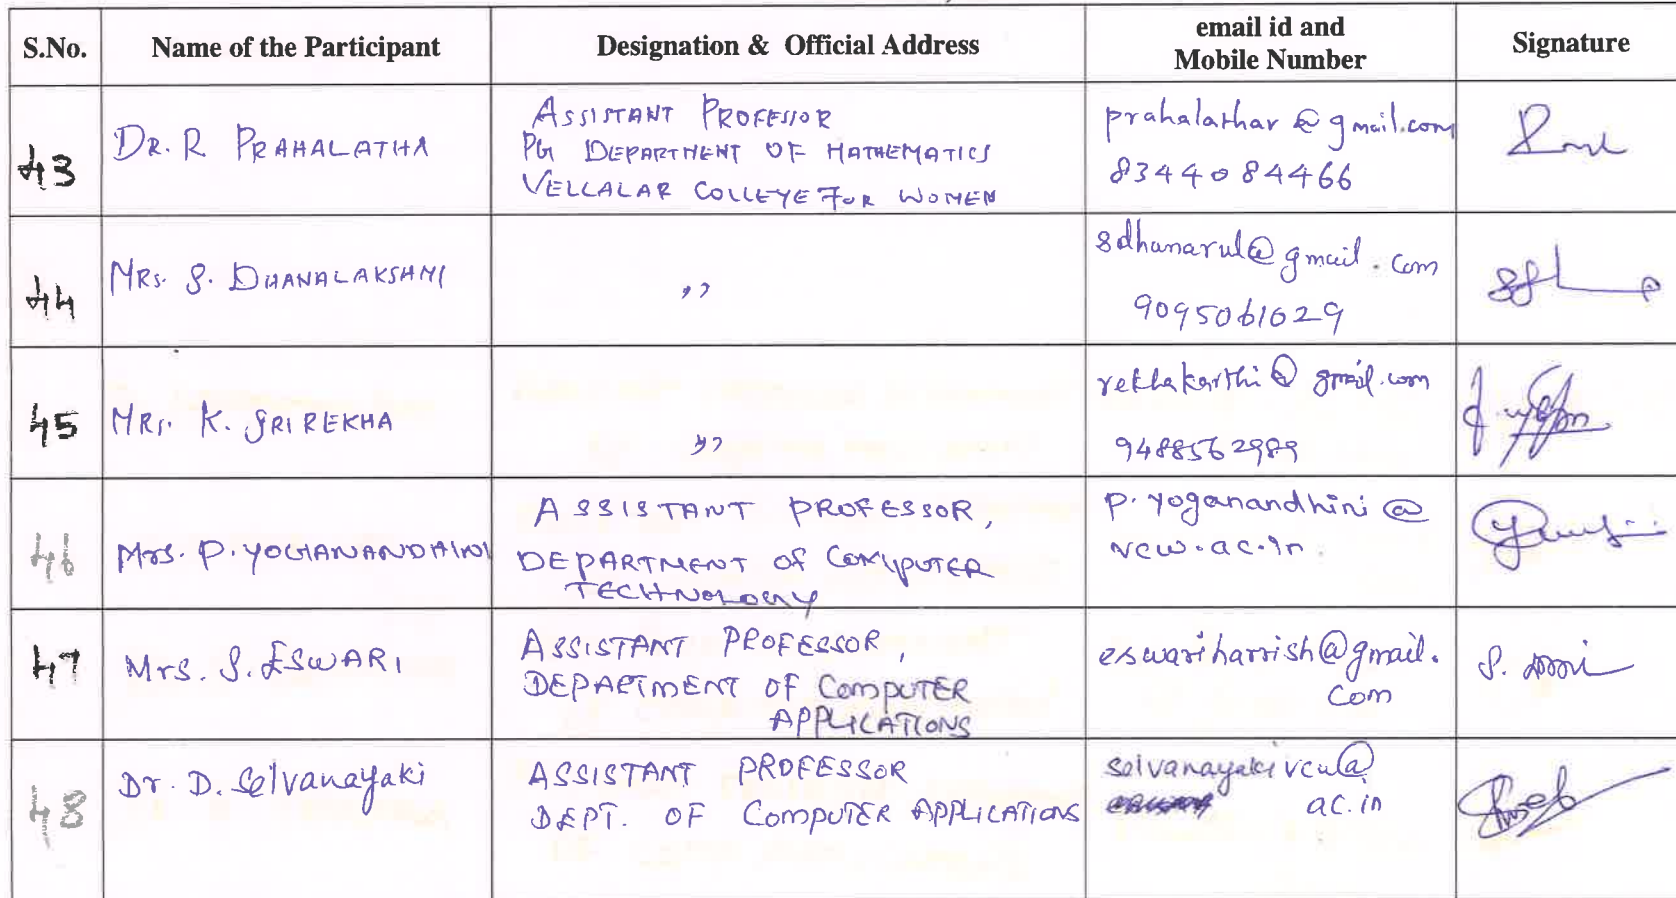 S.No. Name of the Participant Designation & Official Address email id and Mobile Number Signature
43 DR. R PRAHALATHA ASSISTANT PROFESSOR
PG DEPARTMENT OF MATHEMATICS
VELLALAR COLLEGE FOR WOMEN
prahalathar@gmail.com
8344084466
44 MRS. S. DHANALAKSHMI ,,
sdhanarul@gmail.com
9095061629
45 MRS. K. SRIREKHA ,,
rekhakarthi@gmail.com
9488562989
46 Mrs. P. YOGANANDHINI ASSISTANT PROFESSOR,
DEPARTMENT OF COMPUTER
TECHNOLOGY
p.yoganandhini@
vcw.ac.in.
47 Mrs. S. ESWARI ASSISTANT PROFESSOR,
DEPARTMENT OF COMPUTER
APPLICATIONS
eswariharrish@gmail.
com
48 Dr. D. Selvanayaki ASSISTANT PROFESSOR
DEPT. OF COMPUTER APPLICATIONS
ac.in